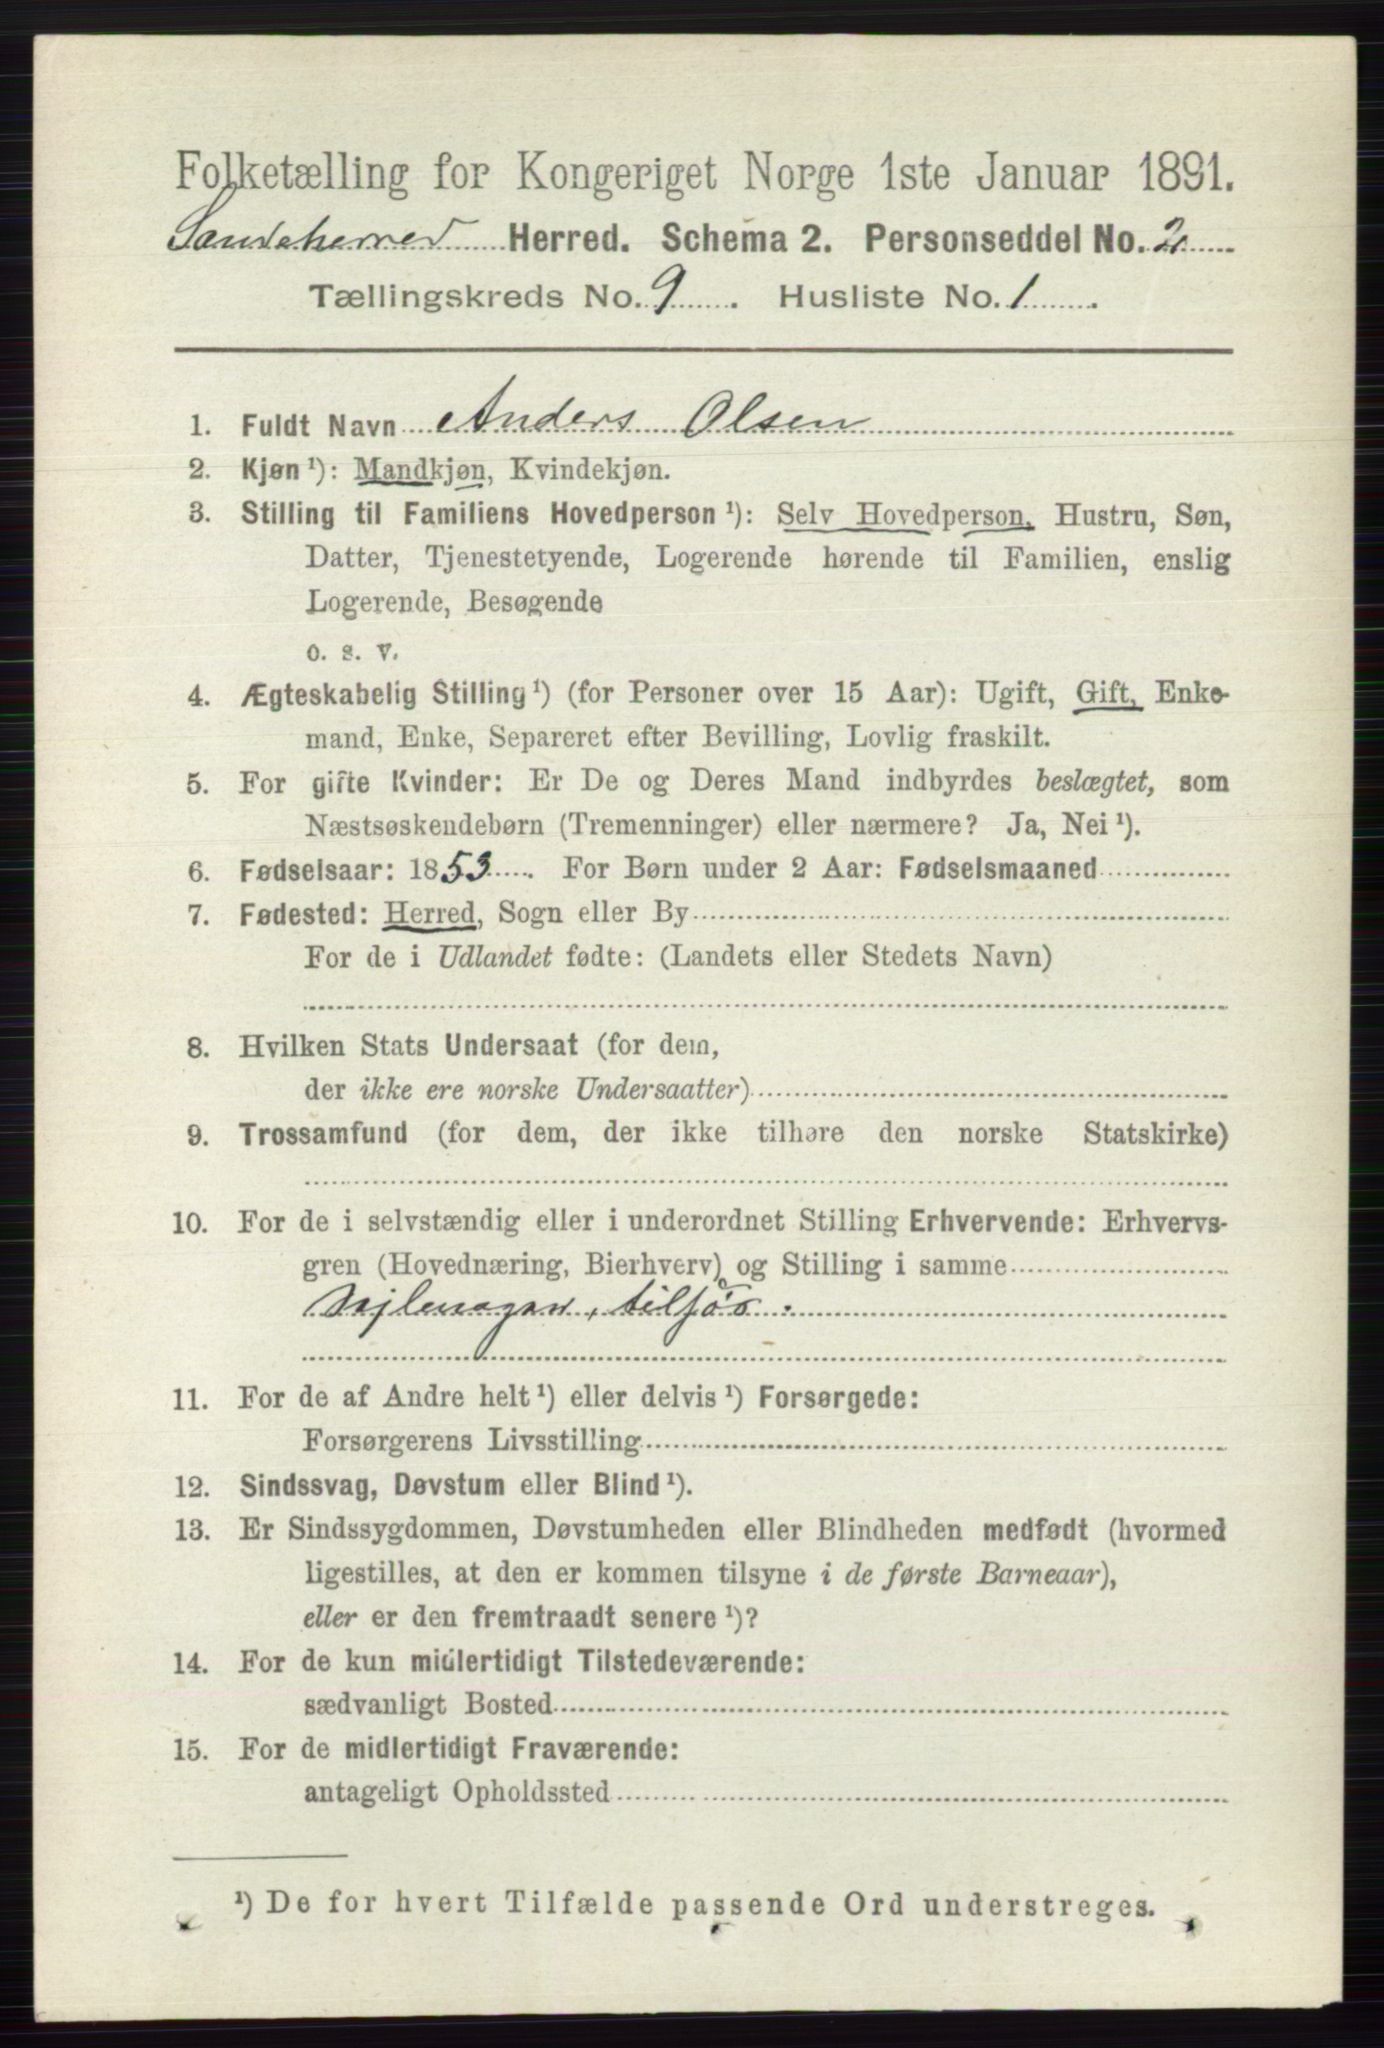 Folketælling for Kongeriget Norge 1ste Januar 1891.
Sandeherred Herred. Schema 2. Personseddel No. 2
Tællingskreds No. 9 . Husliste No. 1 .
1. Fuldt Navn Anders Olsen
2. Kjøn ¹): Mandkjøn, Kvindekjøn.
3. Stilling til Familiens Hovedperson ¹): Selv Hovedperson, Hustru, Søn,
Datter, Tjenestetyende, Logerende hørende til Familien, enslig
Logerende, Besøgende
o. s. v.
4. Ægteskabelig Stilling ¹) (for Personer over 15 Aar): Ugift, Gift, Enke-
mand, Enke, Separeret efter Bevilling, Lovlig fraskilt.
5. For gifte Kvinder: Er De og Deres Mand indbyrdes beslægtet, som
Næstsøskendebørn (Tremenninger) eller nærmere? Ja, Nei ¹).
6. Fødselsaar: 1853 . For Børn under 2 Aar: Fødselsmaaned
7. Fødested: Herred, Sogn eller By
For de i Udlandet fødte: (Landets eller Stedets Navn)
8. Hvilken Stats Undersaat (for dem,
der ikke ere norske Undersaatter)
9. Trossamfund (for dem, der ikke tilhøre den norske Statskirke)
10. For de i selvstændig eller i underordnet Stilling Erhvervende: Erhvervs-
gren (Hovednæring, Bierhverv) og Stilling i samme
tilsjøs.
11. For de af Andre helt ¹) eller delvis ¹) Forsørgede:
Forsørgerens Livsstilling
12. Sindssvag, Døvstum eller Blind ¹).
13. Er Sindssygdommen, Døvstumheden eller Blindheden medfødt (hvormed
ligestilles, at den er kommen tilsyne i de første Barneaar),
eller er den fremtraadt senere ¹)?
14. For de kun midlertidigt Tilstedeværende:
sædvanligt Bosted
15. For de midlertidigt Fraværende:
antageligt Opholdssted
¹) De for hvert Tilfælde passende Ord understreges.